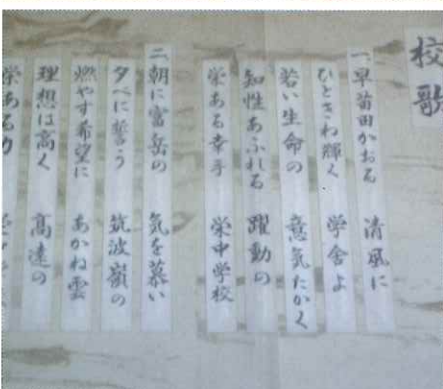 校歌
一、早苗田かおる 清風に
ひときわ輝く 学舎よ
若い生命の 意気たかく
知性あふれる 躍動の
栄ある幸手 栄中学校
二、朝に富岳の 気を慕い
夕べに誓う 筑波嶺の
燃やす希望に あかね雲
理想は高く 高遠の
栄ある力